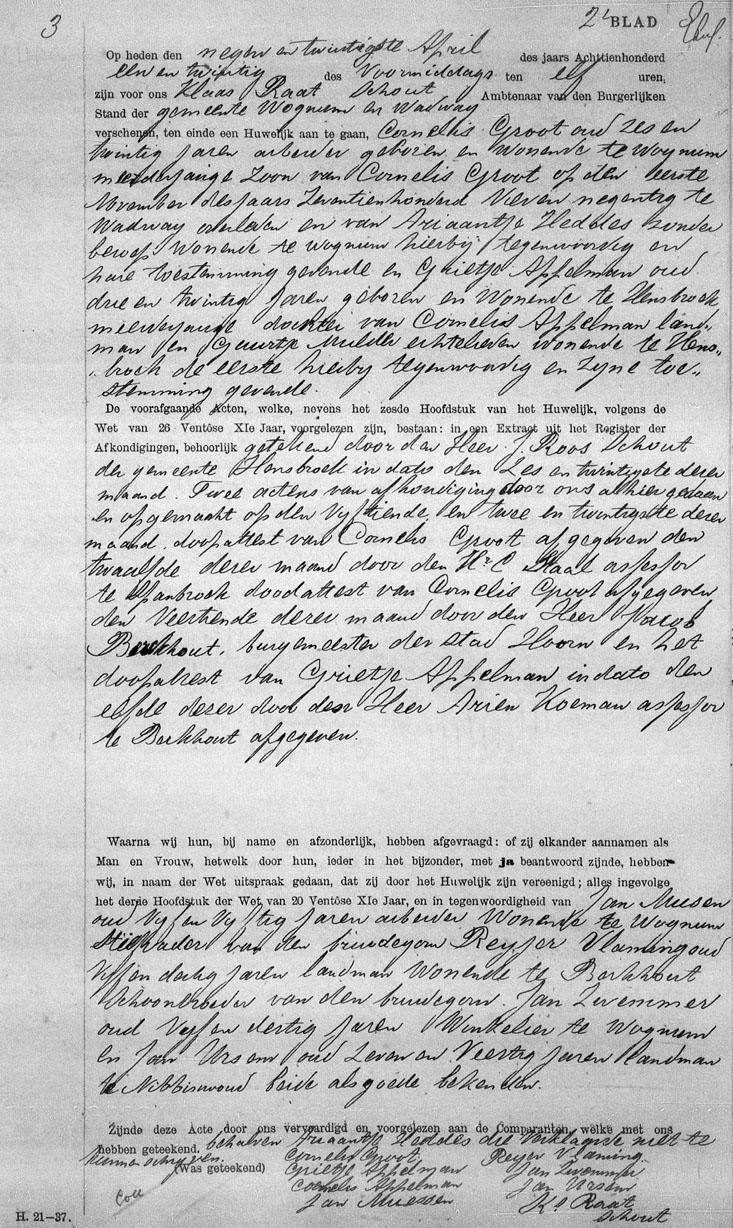 3
2e BLAD
Op heden den negen en twintigste April des jaars Achttienhonderd
een en twintig des Voormiddags ten elf uren,
zijn voor ons Klaas Raat Schout Ambtenaar van den Burgerlijken
Stand der gemeente Wognum en Wadway
verschenen, ten einde een Huwelijk aan te gaan, Cornelis Groot oud Zes en
twintig Jaren arbeider geboren en Wonende te Wognum
meerderjange Zoon van Cornelis Groot op den eerste
November des jaars Zeventienhonderd Vier en negentig te
Wadway overleden en van Ariaantje Heddes zonder
beroep Wonende te Wognum hierbij tegenwoordig en
hare toestemming gevende en Grietje Appelman oud
drie en twintig Jaren geboren en Wonende te Hensbroek
meerderjarige dochter van Cornelis Appelman land„
man en Geertje Mulder echtelieden wonende te Hens„
„broek de eerste hierby tegenwoordig en Zijne toe„
stemming gevende.
De voorafgaande Acten, welke, nevens het zesde Hoofdstuk van het Huwelijk, volgens de
Wet van 26 Ventôse XIe Jaar, voorgelezen zijn, bestaan: in een Extract uit het Register der
Afkondigingen, behoorlijk getekend door den Heer J. Roos Schout
der gemeente Hensbroek in dato den Zes en twintigste dezer
maand. Twee actens van afkondiging door ons alhier gedaan
en opgemaakt op den Vijftiende, en twee en twintigste dezer
maand. doopattest van Cornelis Groot afgegeven den
twaalfde dezer maand door den Hr. C Staal assessor
te Spanbroek doodattest van Cornelis Groot afgegeven
den Veertiende dezer maand door den Heer
Berkhout, burgemeester der stad Hoorn en het
doopattest van Grietje Appelman in dato den
elfde dezer door den Heer Arien Koeman assessor
te Berkhout afgegeven.
Waarna wij hun, bij name en afzonderlijk, hebben afgevraagd: of zij elkander aannamen als
Man en Vrouw, hetwelk door hun, ieder in het bijzonder, met ja beantwoord zijnde, hebben
wij, in naam der Wet uitspraak gedaan, dat zij door het Huwelijk zijn vereenigd; alles ingevolge
het derde Hoofdstuk der Wet van 20 Ventôse XIe Jaar, en in tegenwoordigheid van Jan Muesen
oud Vijf en Vijftig Jaren arbeider Wonende te Wognum
Stiefvader van den bruidegom Reyjer Vlaming oud
Vijf en dertig Jaren landman Wonende te Berkhout
Schoonbroeder van den bruidegom. Jan Zwemmer
oud Vijf en dertig Jaren Winkelier te Wognum
en Jan Ursem oud Zeven en Veertig Jaren landman
te Nibbixwoud beide als goede bekenden.
Zijnde deze Acte door ons vervaardigd en voorgelezen aan de Comparanten, welke met ons
hebben geteekend. behalven Ariaantje Heddes die Verklaarde niet te
kunnen schrijven.
(Was geteekend) Cornelis Groot Reyer Vlaming
Grietje Appelman Jan Zwemmer
Cornelis Appelman Jan Ursem
Jan Muessen Ks Raat
Schout
Coll
H. 21-37.